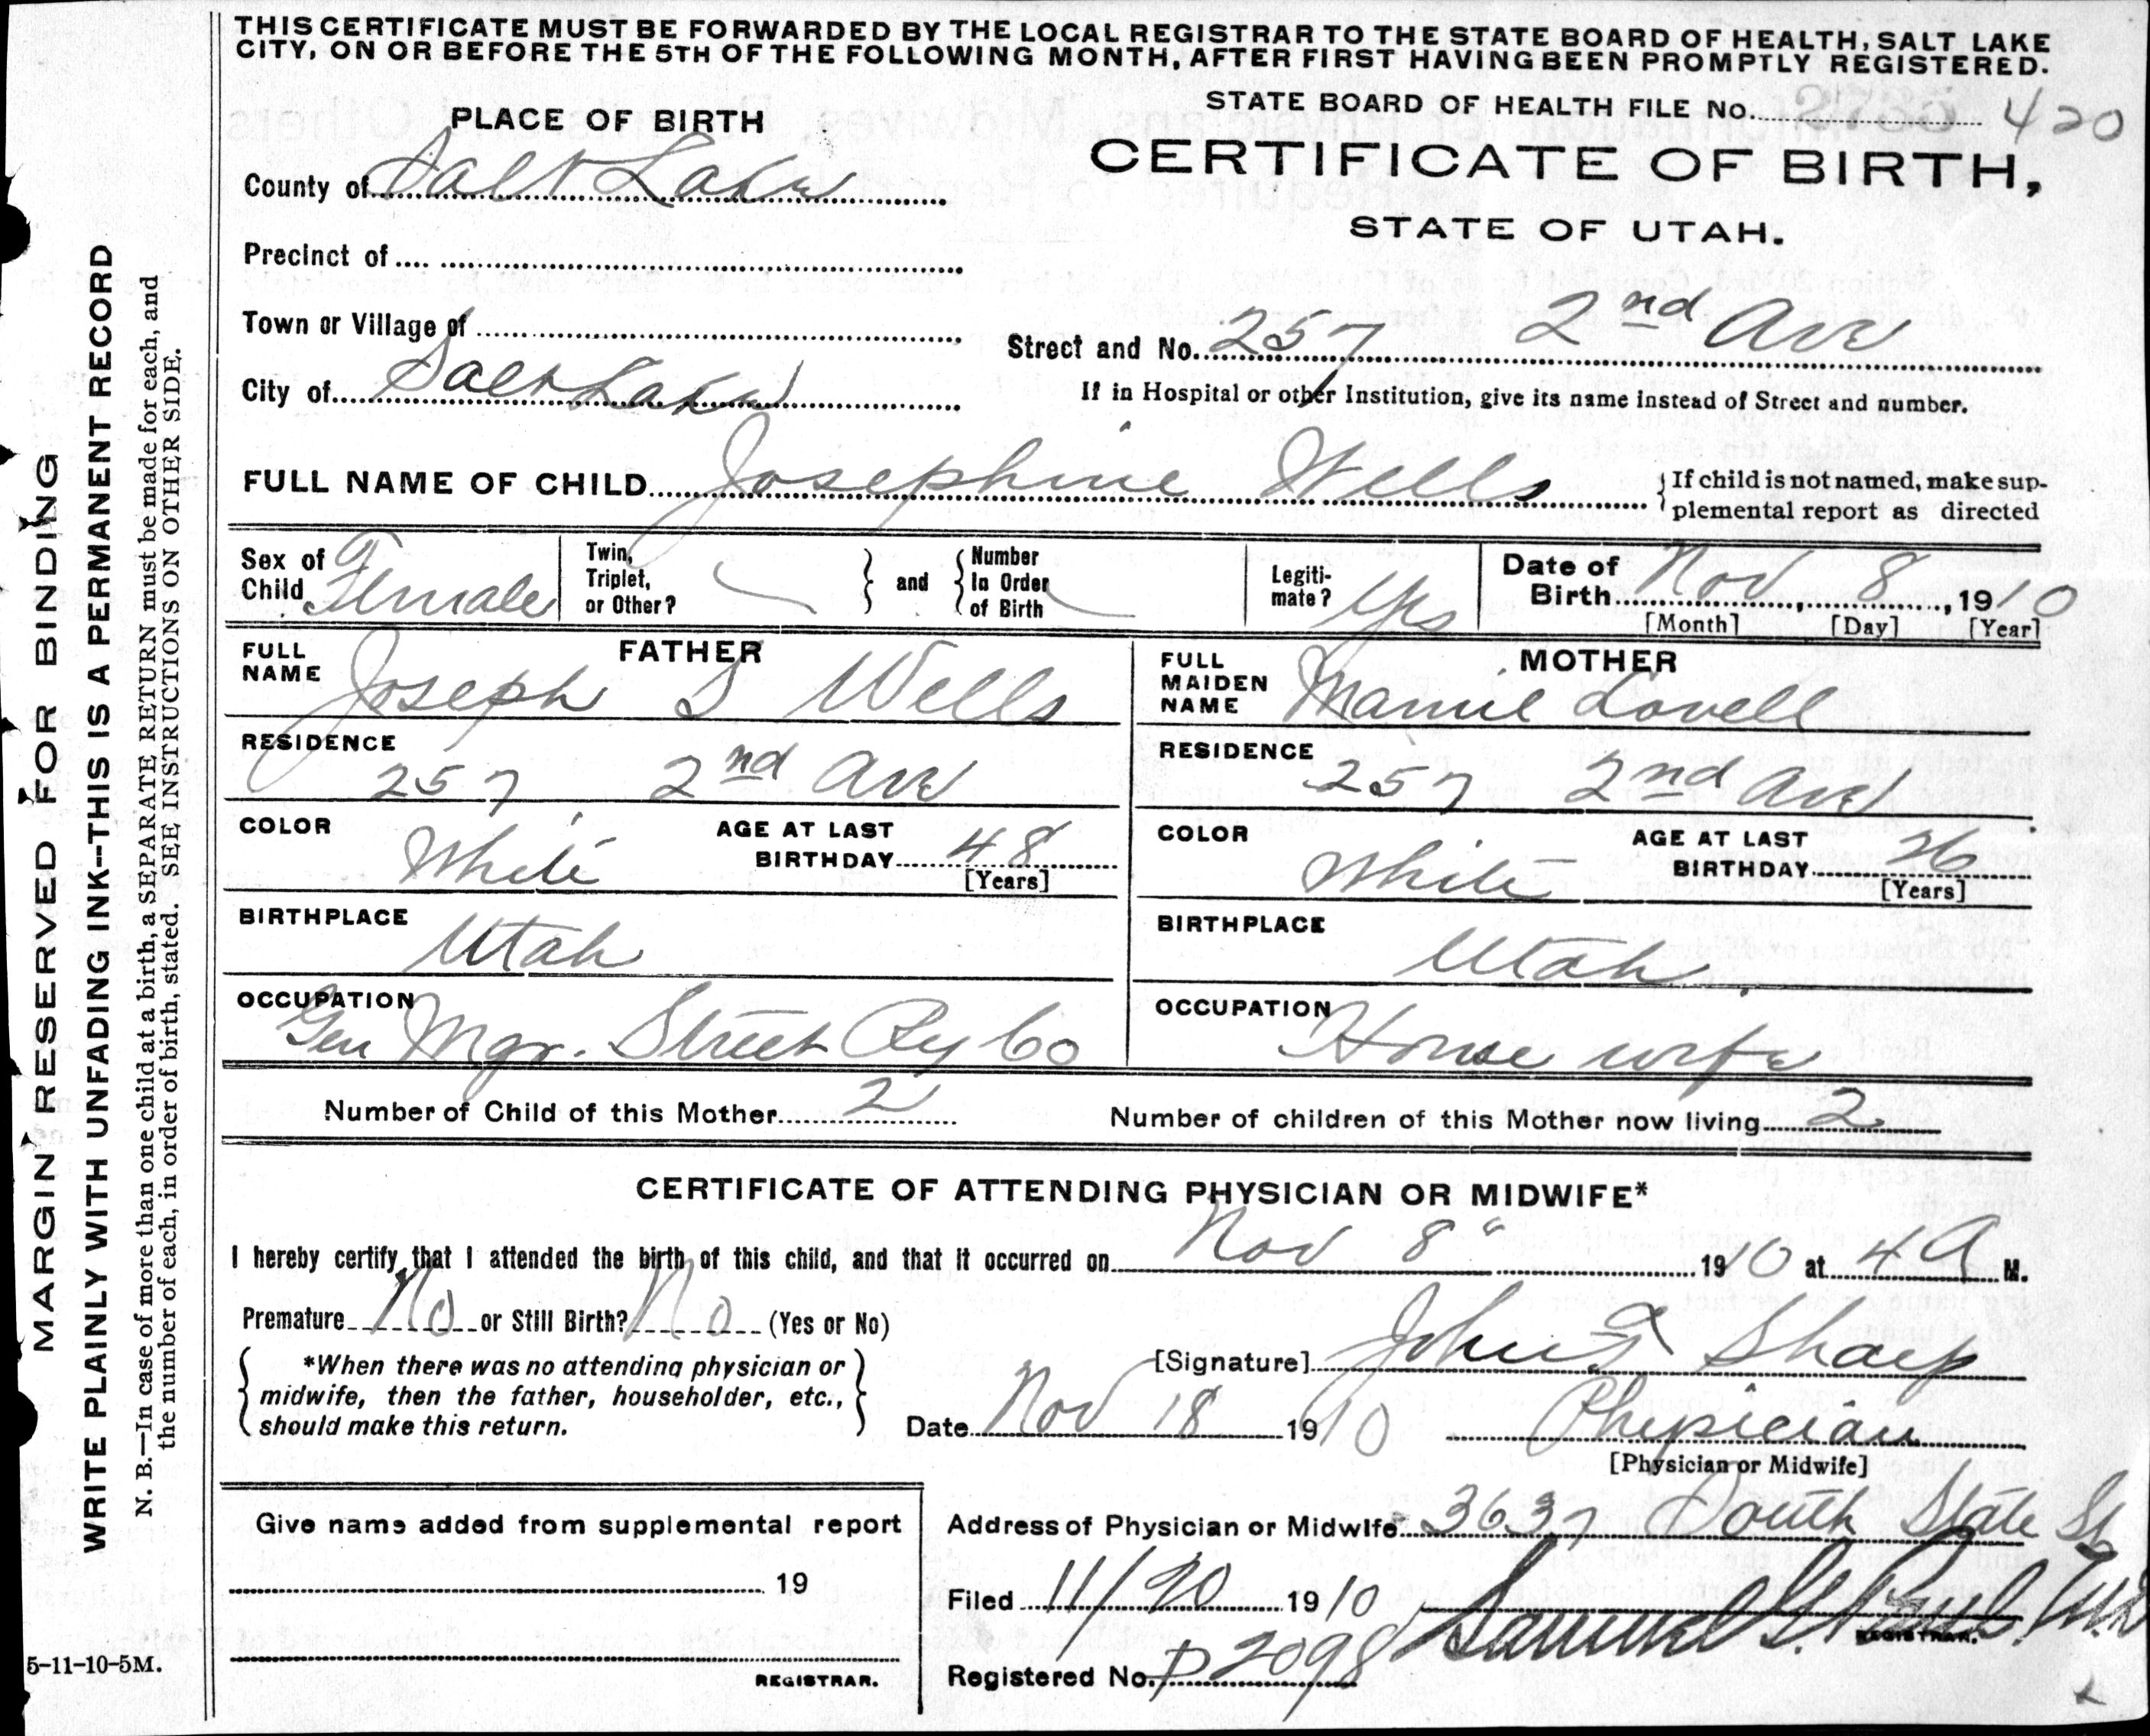 THIS CERTIFICATE MUST BE FORWARDED BY THE LOCAL REGISTRAR TO THE STATE BOARD OF HEALTH, SALT LAKE
CITY, ON OR BEFORE THE 5TH OF THE FOLLOWING MONTH, AFTER FIRST HAVING BEEN PROMPTLY REGISTERED.
STATE BOARD OF HEALTH FILE No. 420
PLACE OF BIRTH
CERTIFICATE OF BIRTH,
STATE OF UTAH.
County of Salt Lake
Precinct of
Town or Village of
Street and No. 257 2nd Ave
City of Salt Lake
If in Hospital or other Institution, give its name instead of Street and number.
FULL NAME OF CHILD Josephine Wells
If child is not named, make sup-
plemental report as directed
Sex of Child Female
Twin, Triplet, or Other?
and
Number In Order of Birth
Legiti-mate? Yes
Date of Birth Nov 8, 1910
[Month] [Day] [Year]
FATHER
FULL NAME Joseph S Wells
RESIDENCE 257 2nd Ave
COLOR White
AGE AT LAST BIRTHDAY 48
[Years]
BIRTHPLACE Utah
OCCUPATION Gen Mgr. Street Ry Co
MOTHER
FULL MAIDEN NAME Mamie Lovell
RESIDENCE 257 2nd Ave
COLOR White
AGE AT LAST BIRTHDAY 26
[Years]
BIRTHPLACE Utah
OCCUPATION House wife
Number of Child of this Mother 2
Number of children of this Mother now living 2
CERTIFICATE OF ATTENDING PHYSICIAN OR MIDWIFE*
I hereby certify, that I attended the birth of this child, and that it occurred on Nov 8" 1910 at 4 A M.
Premature No or Still Birth? No (Yes or No)
*When there was no attending physician or
midwife, then the father, householder, etc.,
should make this return.
[Signature] John F Sharp
Date Nov 18 1910
Physician
[Physician or Midwife]
Give name added from supplemental report
19
REGISTRAR.
Address of Physician or Midwife 3637 South State St
Filed 11/20 1910
Samuel G. Paul. M.D
REGISTRAR.
Registered No. D 2098
MARGIN RESERVED FOR BINDING
WRITE PLAINLY WITH UNFADING INK--THIS IS A PERMANENT RECORD
N. B.—In case of more than one child at a birth, a SEPARATE RETURN must be made for each, and
the number of each, in order of birth, stated. SEE INSTRUCTIONS ON OTHER SIDE.
5-11-10-5M.